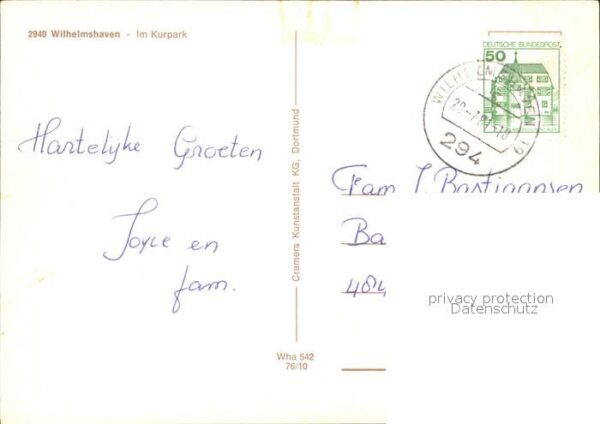 2940 Wilhelmshaven - Im Kurpark
DEUTSCHE BUNDESPOST
50
WILHELMSHAVEN 19
294
Hartelijke Groeten
Joyce en
fam.
Fam J. Bastiaansen
Ba
484
Cramers Kunstanstalt KG, Dortmund
Wha 542
76/10
privacy protection
Datenschutz